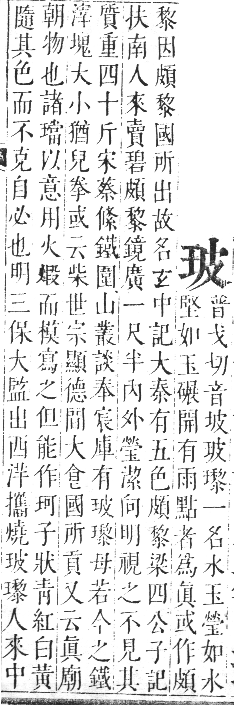 玻
普戈切音坡玻瓈一名水玉瑩如水
堅如玉碾開有雨點者為眞或作頗
黎因頗黎國所出故名玄中記大秦有五色頗黎梁四公子記
扶南人來賣碧頗黎鏡廣一尺半內外瑩潔向明視之不見其
質重四十斤宋蔡絛鐵圍山叢談奉宸庫有玻瓈母若今之鐵
滓塊大小猶兒拳或云柴世宗顯德間大食國所貢又云眞廟
朝物也諸璫以意用火煅而模寫之但能作珂子狀青紅白黃
隨其色而不克自必也明三保大監出西洋攜燒玻瓈人來中